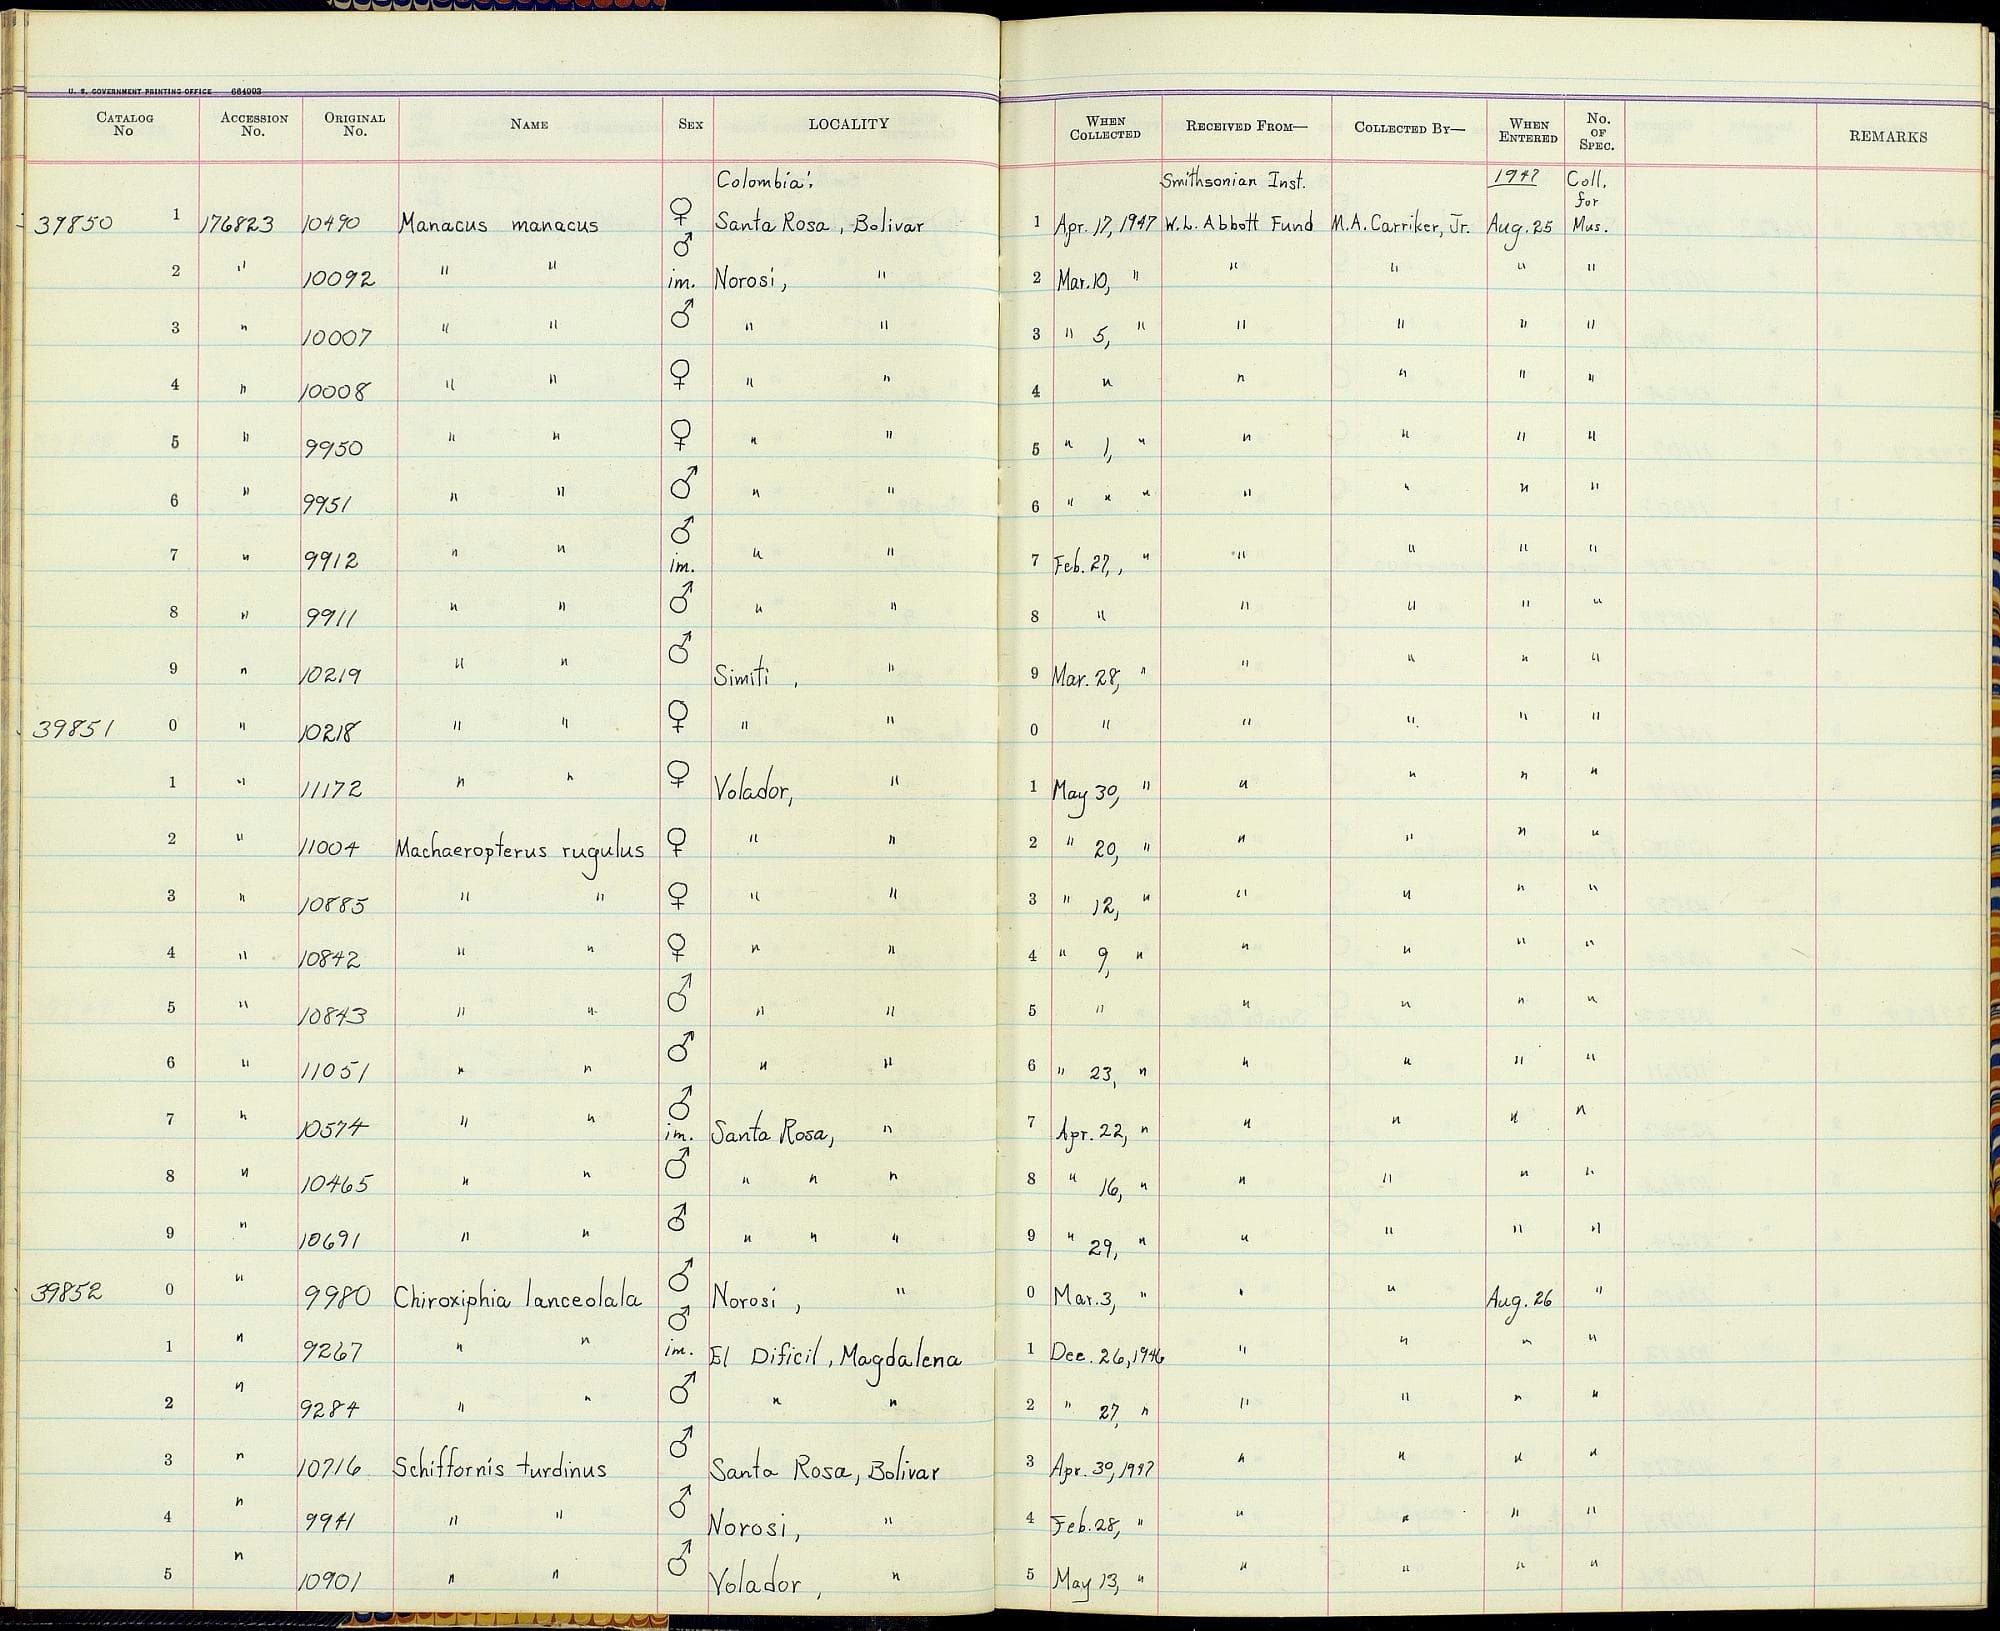 U. S. GOVERNMENT PRINTING OFFICE 664003
CATALOG No ACCESSION No. ORIGINAL No. NAME SEX LOCALITY WHEN COLLECTED RECEIVED FROM— COLLECTED BY— WHEN ENTERED No. OF SPEC. REMARKS
Colombia: Smithsonian Inst. 1947 Coll. for
39850 1 176823 10490 Manacus manacus ♀ Santa Rosa, Bolivar 1 Apr. 17, 1947 W.L. Abbott Fund M.A. Carriker, Jr. Aug. 25 Mus.
2 " 10092 " " ♂ im. Norosi, " 2 Mar. 10, " " " " "
3 " 10007 " " ♂ " " 3 " 5, " " " " "
4 " 10008 " " ♀ " " 4 " " " " "
5 " 9950 " " ♀ " " 5 " 1, " " " " "
6 " 9951 " " ♂ " " 6 " " " " " " "
7 " 9912 " " ♂ im. " " 7 Feb. 27, , " " " " "
8 " 9911 " " ♂ " " 8 " " " " "
9 " 10219 " " ♂ Simiti , " 9 Mar. 28, " " " " "
39851 0 " 10218 " " ♀ " " 0 " " " " "
1 " 11172 " " ♀ Volador, " 1 May 30, " " " " "
2 " 11004 Machaeropterus rugulus ♀ " " 2 " 20, " " " " "
3 " 10885 " " ♀ " " 3 " 12, " " " " "
4 " 10842 " " ♀ " " 4 " 9, " " " " "
5 " 10843 " " ♂ " " 5 " " " " "
6 " 11051 " " ♂ " " 6 " 23, " " " " "
7 " 10574 " " ♂ im. Santa Rosa, " 7 Apr. 22, " " " " "
8 " 10465 " " ♂ " " " 8 " 16, " " " " "
9 " 10691 " " ♂ " " " 9 " 29, " " " " "
39852 0 " 9980 Chiroxiphia lanceolala ♂ Norosi , " 0 Mar. 3, " " " Aug. 26 "
1 " 9267 " " ♂ im. El Dificil, Magdalena 1 Dec. 26, 1946 " " " "
2 " 9284 " " ♂ " " 2 " 27, " " " " "
3 " 10716 Schiffornis turdinus ♂ Santa Rosa, Bolivar 3 Apr. 30, 1947 " " " "
4 " 9941 " " ♂ Norosi, " 4 Feb. 28, " " " " "
5 " 10901 " " ♂ Volador , " 5 May 13, " " " " "